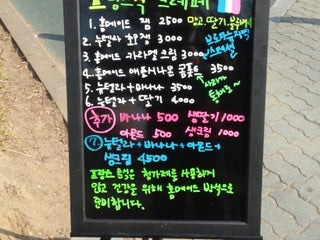 1. 홈메이드 잼 2500 망고, 딸기, 블루베리
2. 누텔라 초코잼 3000
3. 홈메이드 카라멜 크림 3000
4. 홈메이드 애플시나몬 콩포트 3500
5. 누텔라 + 바나나 3500
6. 누텔라 + 딸기 4000
추가 바나나 500 생딸기 1000
아몬드 500 생크림 1000
⑦ 누텔라 + 바나나 + 아몬드 +
생크림 4500
첨가제를 사용하지
않고 건강을 위해 홈메이드 방식으로
준비합니다.